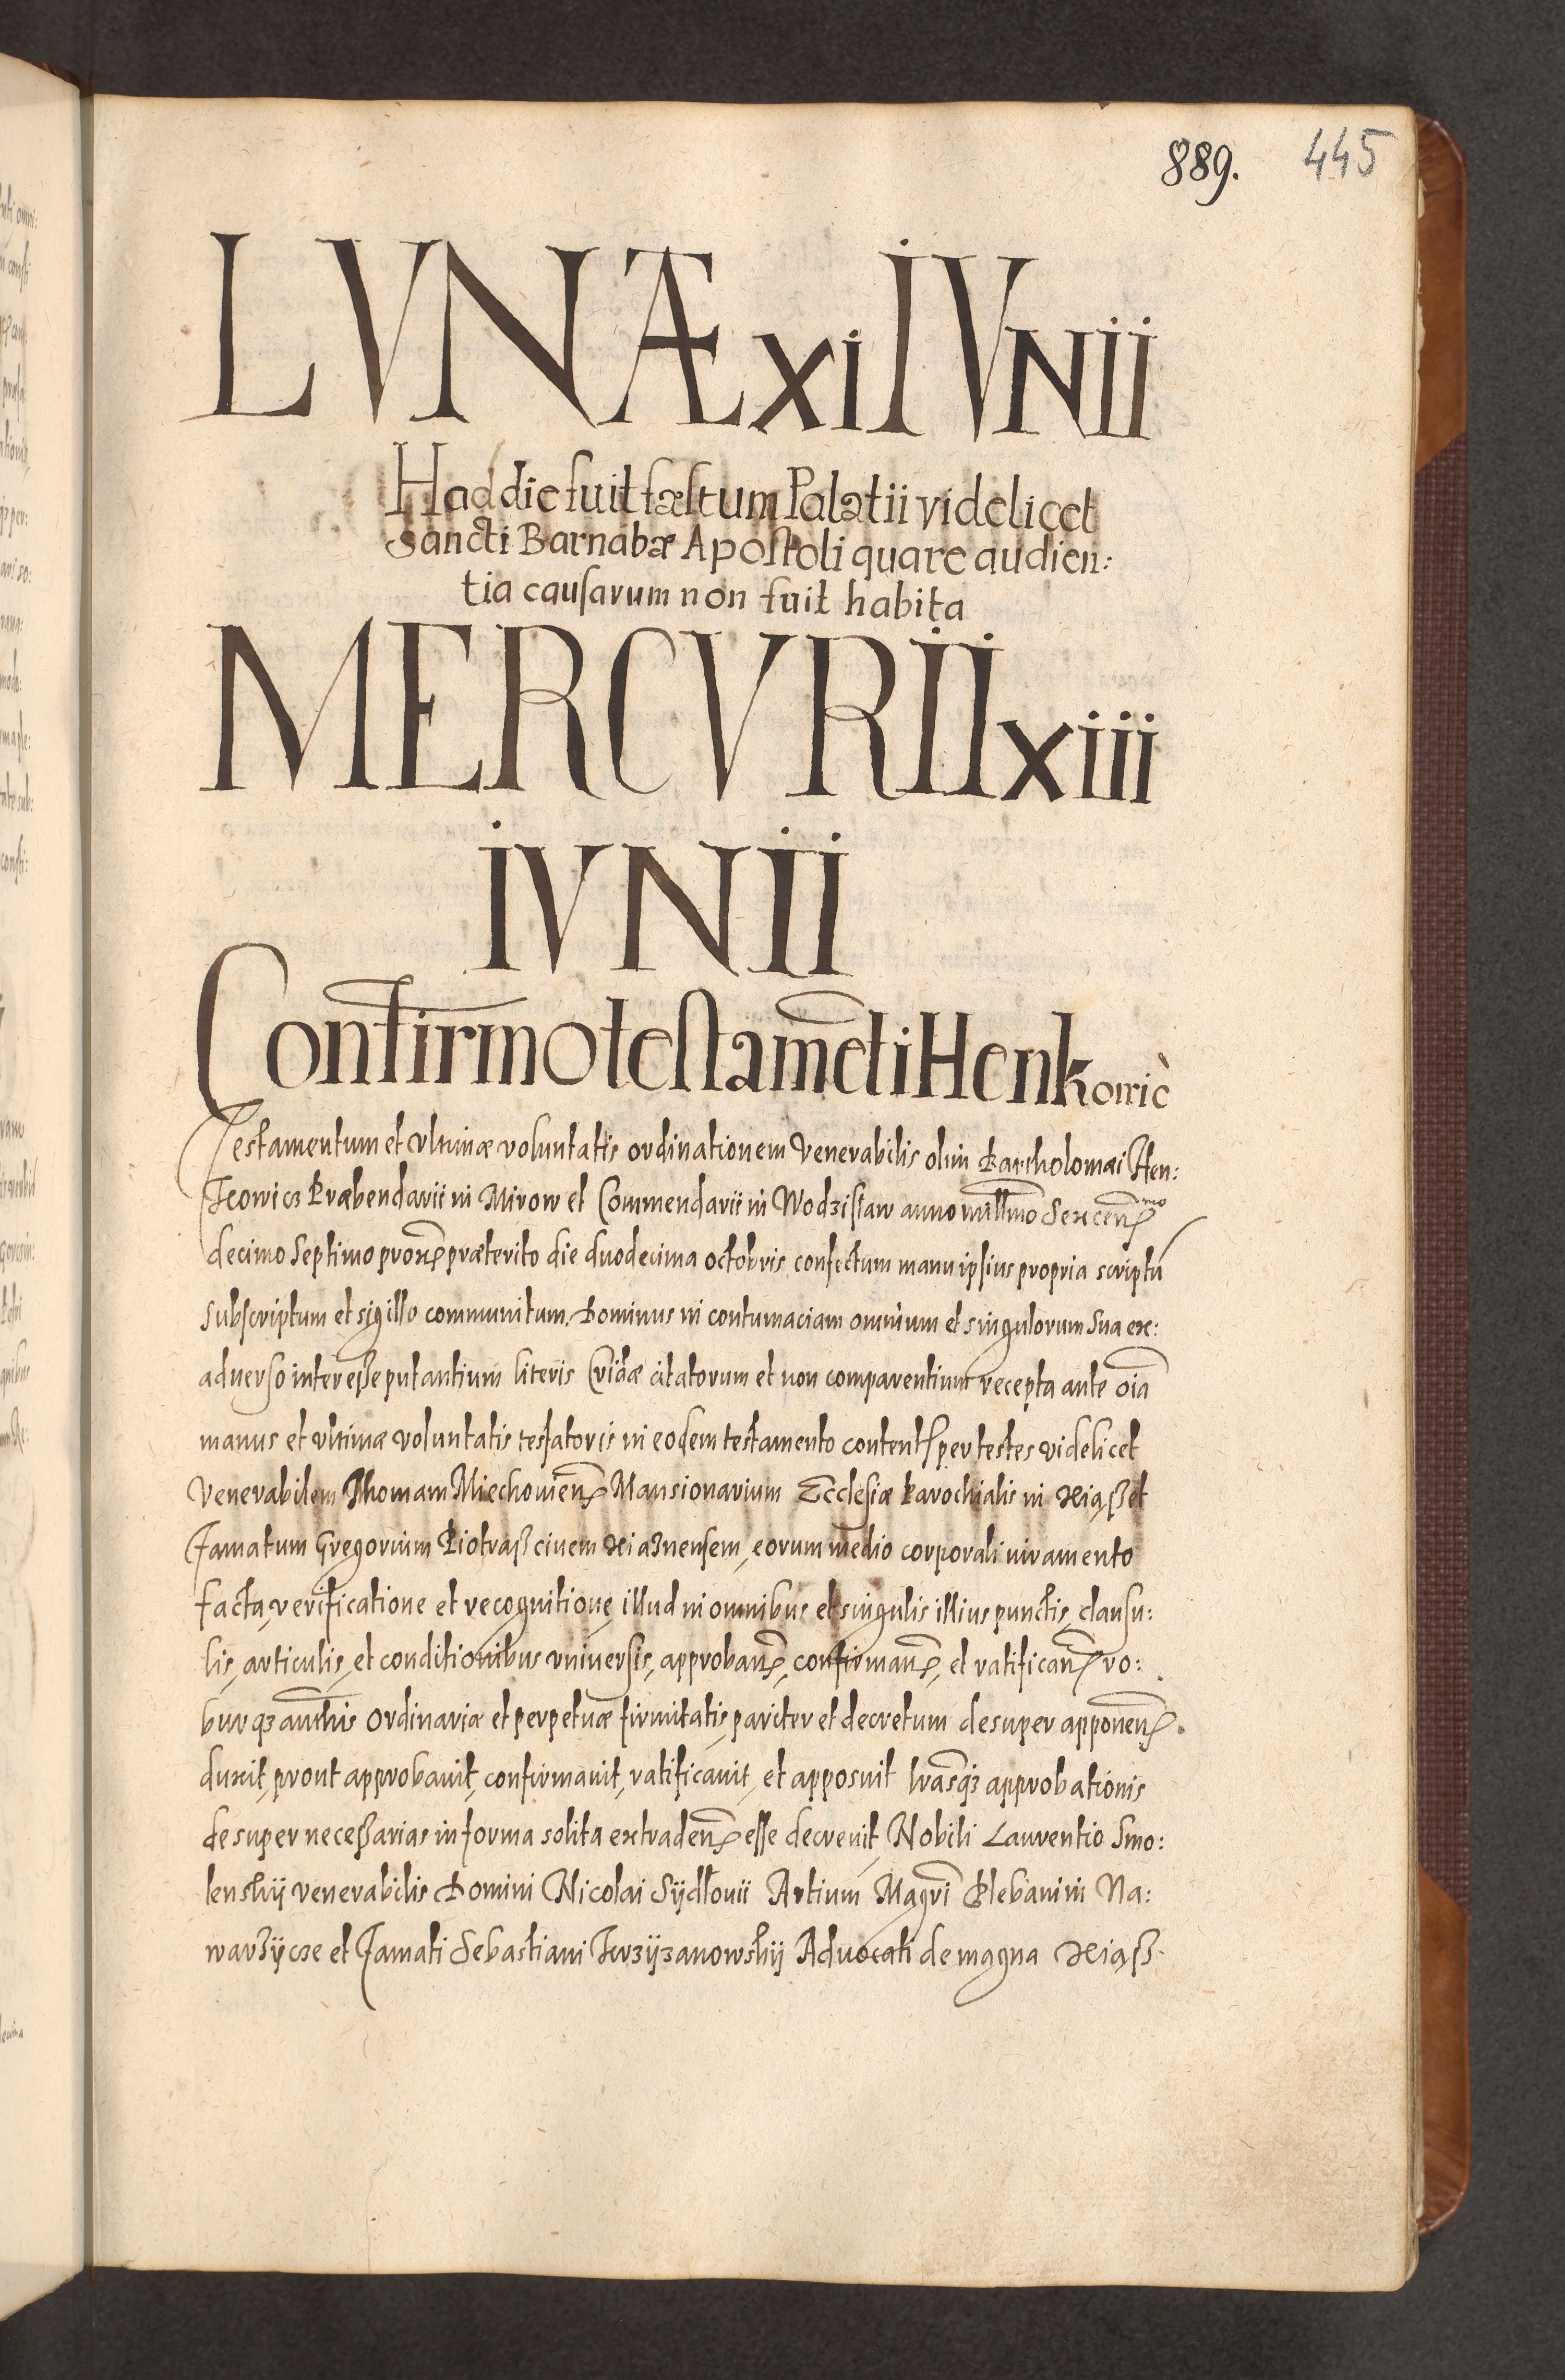 889. 445
LVNÆ xi IVNII
Hac die fuit fæstum Palatii videlicet
Sancti Barnabæ Apostoli quare audien:
tia causarum non fuit habita
MERCVRII xiii
IVNII
Confirmo testameti Henkowic
Testamentum et vltimæ voluntatis ordinationem Venerabilis olim Bartholomæi Hen:
kowicz Præbendarii in Mirow et Commendarii in Wodzisław anno millmo Sexcen^mo
decimo Septimo prox præterito die duodecima octobris confectum manu ipsius propria scriptu
subscriptum et sigillo communitum. Dominus in contumaciam omnium et singulorum sua ex:
adverso interesse putantium literis Cridæ citatorum et non comparentium recepta ante oia
manus et vltimæ voluntatis testatoris in eodem testamento content per testes videlicet
Venerabilem Thomam Miechouien Mansionarium Ecclesiæ Parochialis in Xiąsz et
Famatum Gregorium Piotrasz ciuem Xiąznensem, eorum medio corporali iuramento
facta, verificatione et recognitione, illud in omnibus et singulis illius punctis, clausu:
lis, articulis, et conditionibus vniuersis, approban, confirman, et ratifican ro:
burqz authis Ordinariæ et perpetuæ firmitatis, pariter et decretum desuper apponen.
duxit, prout approbauit, confirmauit, ratificauit, et apposuit lrasqz approbationis
desuper necessarias in forma solita extraden esse decreuit, Nobili Laurentio Smo:
lenskij venerabilis Domini Nicolai Sijdłouii Artium Magri Plebani in Na:
warzijcze et Famati Sebastiani Krzijzanowskij Aduocati de magna Xiąsz.